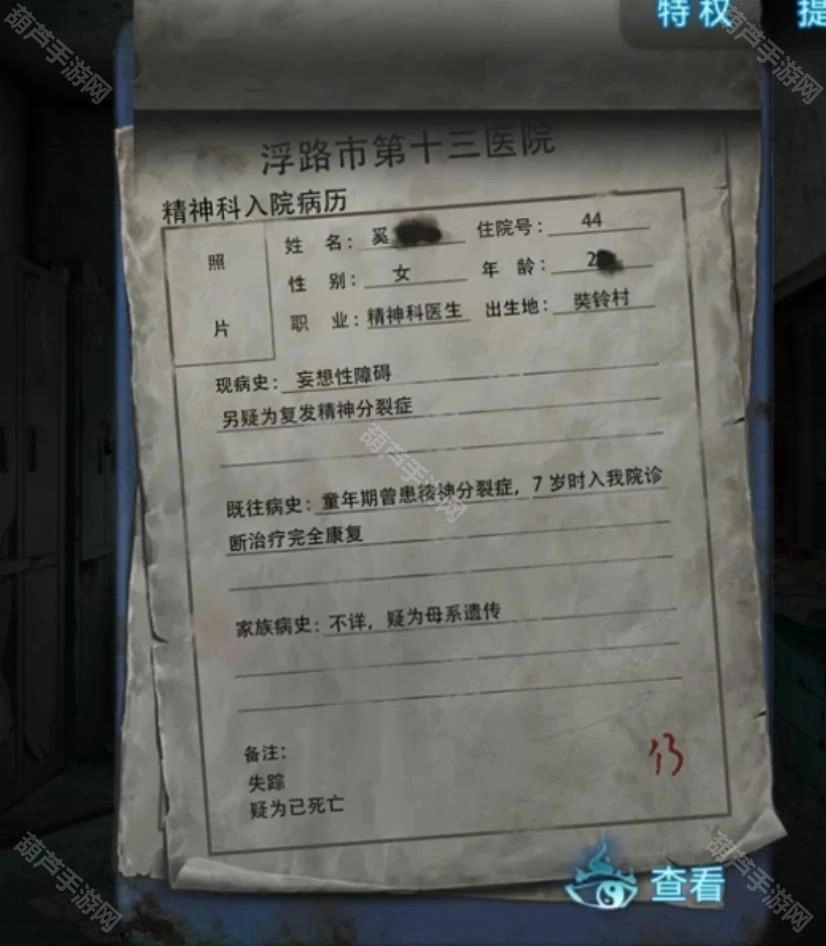 特权 提
葫芦手游网
葫芦手游网
浮路市第十三医院
精神科入院病历
照片
姓 名：奚 住院号：44
性 别：女 年 龄：2
职 业：精神科医生 出生地：奘铃村
现病史：妄想性障碍
另疑为复发精神分裂症
葫芦手游网
既往病史：童年期曾患精神分裂症，7 岁时入我院诊
断治疗完全康复
家族病史：不详，疑为母系遗传
备注：
失踪
疑为已死亡
13
查看
葫芦手游网
葫芦手游网